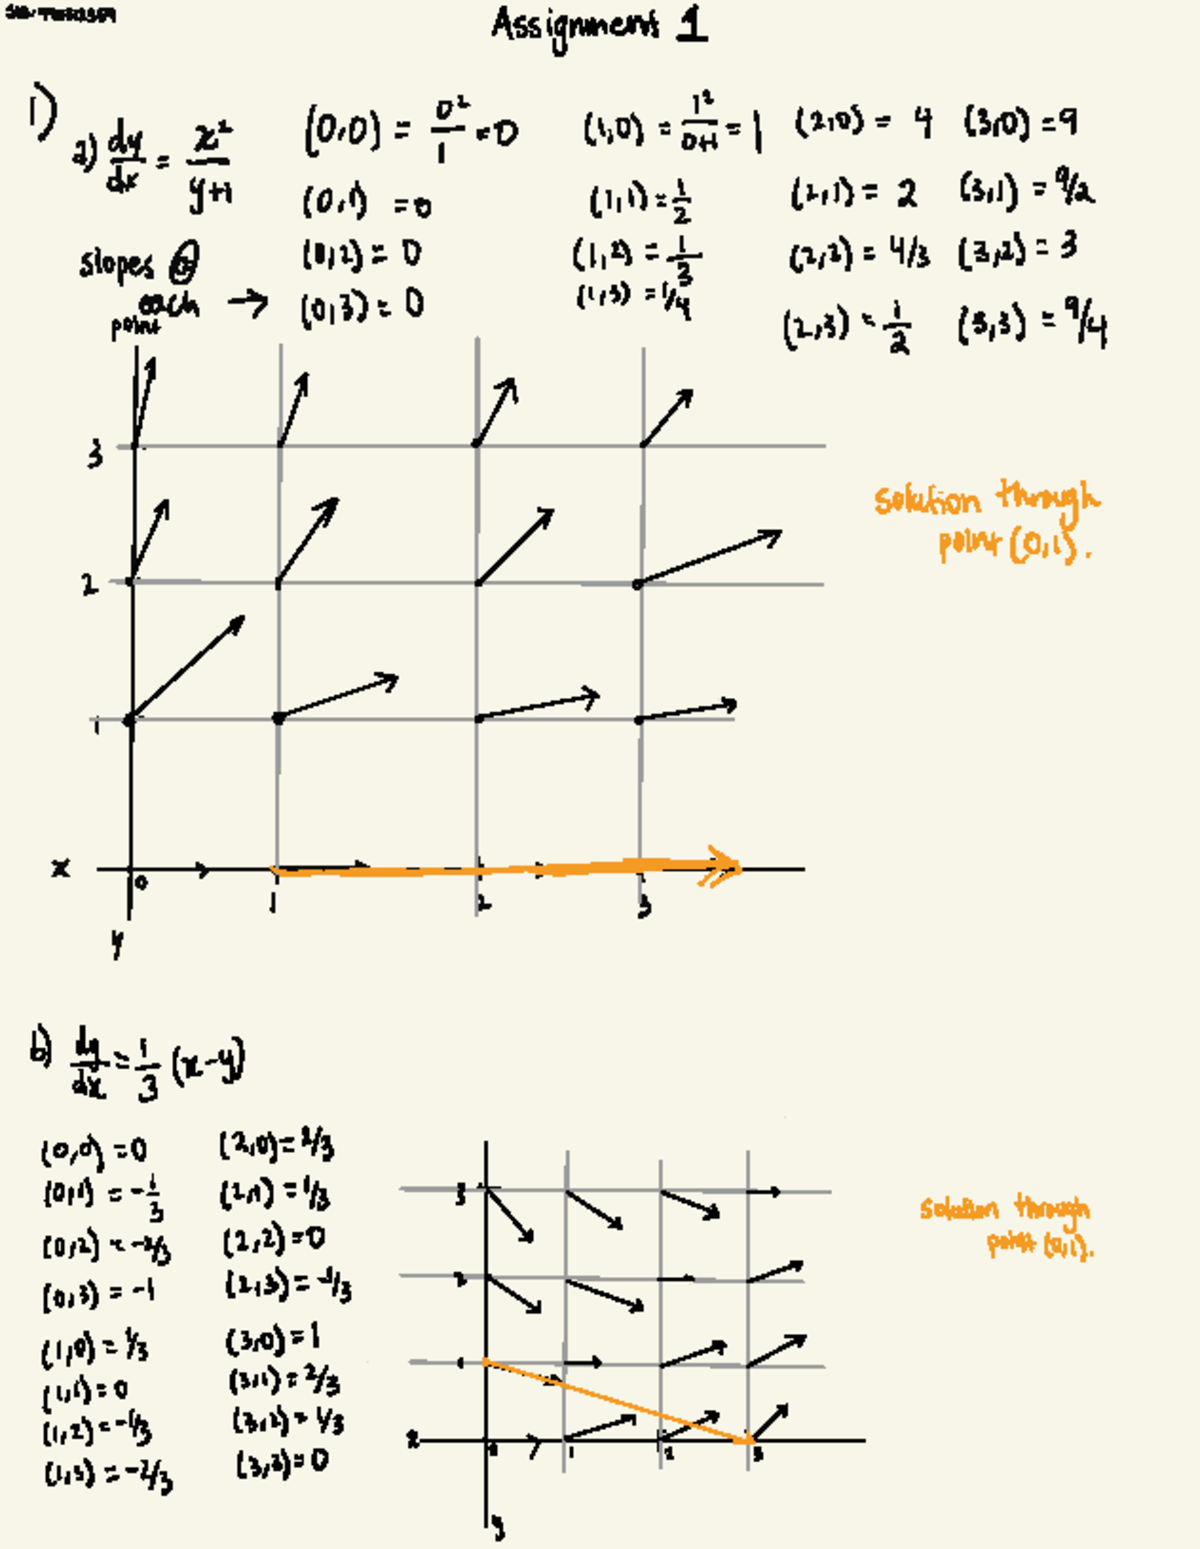 Assignment 1
1)
a) dy/dx = x²/(y+1)
(0,0) = 0²/1 = 0
(1,0) = 1²/(0+1) = 1
(2,0) = 4
(3,0) = 9
(0,1) = 0
(1,1) = 1/2
(2,1) = 2
(3,1) = 9/2
slopes @
each →
point
(0,2) = 0
(1,2) = 1/3
(2,2) = 4/3
(3,2) = 3
(0,3) = 0
(1,3) = 1/4
(2,3) = 1/2
(3,3) = 9/4
3
2
1
x
0
1
2
3
y
solution through
point (0,1).
b) dy/dx = 1/3 (x-y)
(0,0) = 0
(0,1) = -1/3
(0,2) = -2/3
(0,3) = -1
(1,0) = 1/3
(1,1) = 0
(1,2) = -1/3
(1,3) = -2/3
(2,0) = 2/3
(2,1) = 1/3
(2,2) = 0
(2,3) = -1/3
(3,0) = 1
(3,1) = 2/3
(3,2) = 1/3
(3,3) = 0
3
2
1
x
1
2
3
y
solution through
point (0,1).